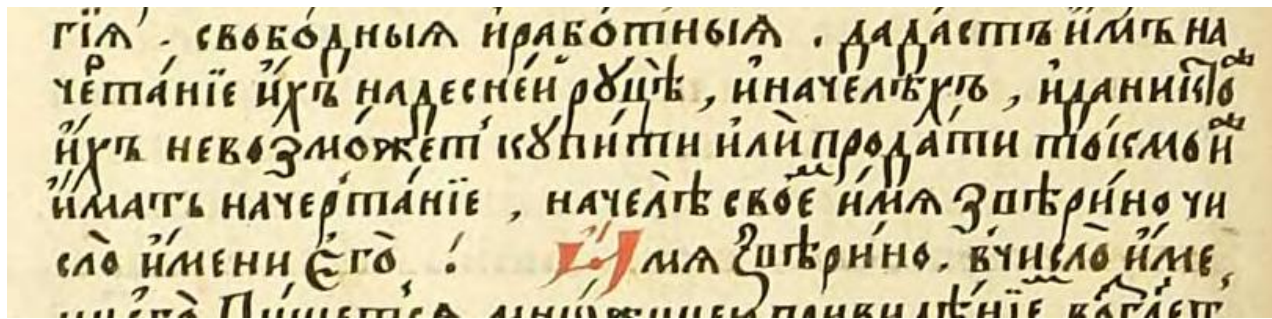 гі́ѧ . свобо́дныѧ и҆рабо́тныѧ . да да́стъ и҆́мъ на
черта́нїе и҆́хъ надесне́й рꙋцѣ̀ , и҆начелѣ́хъ , и҆да никто́ж
и҆́хъ невозмо́жет кꙋпи́ти и҆лѝ прода́ти то́кмо и҆́ж
и҆́мать начерта́нїе , начелѣ̀ свое́м и҆́мѧ ѕвѣри́но чи
сло̀ и҆́мени є҆гѡ̀ : И҆́мѧ ѕвѣри́но . в число̀ и҆́ме ,